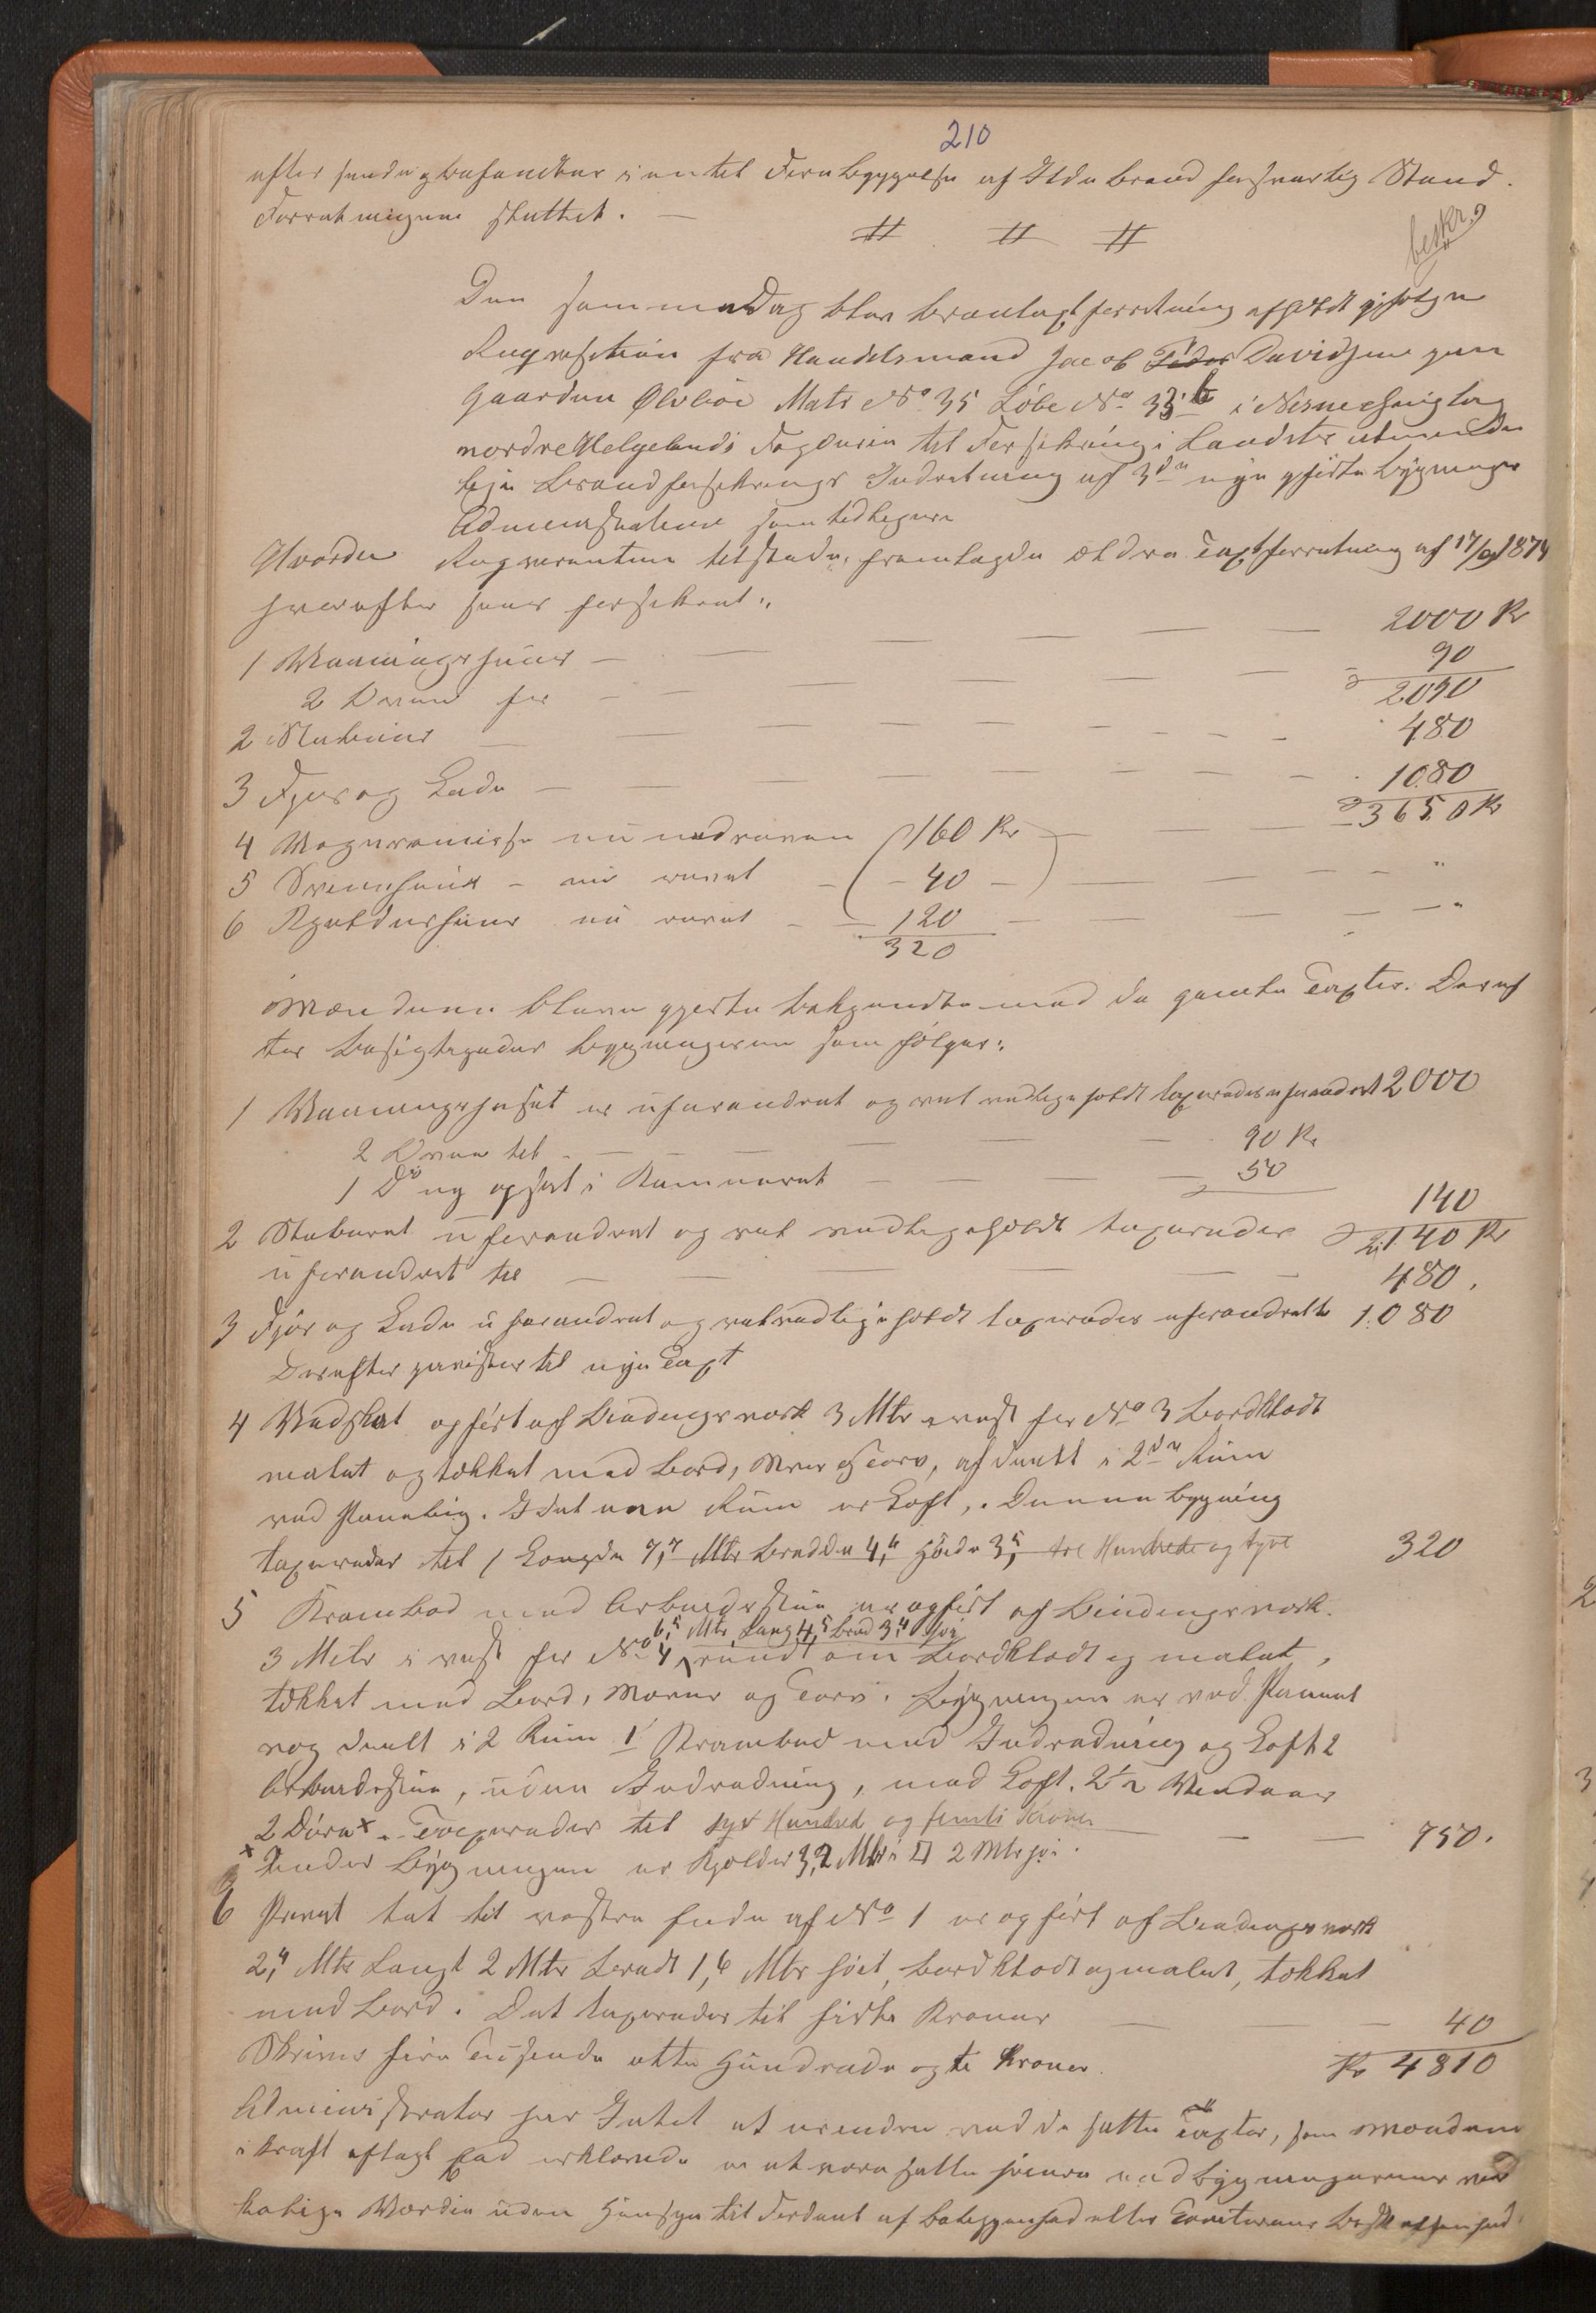 210
efter sende befandtes i en til Forebyggelse af Ildebrand forsvarlig Stand.
Forretningen sluttet. —
# # #
beskr.
Den samme Dag blev Brandtaxtforretning afholdt ifølge
Reqvisition fra Handelsmand Jacob Davidsen paa
Gaarden Ølvbøe Matr No. 35 Løbe No. 33 b i Nesne Thinglag
nordre Helgelands Fogderie til Forsikring i Landets alminde
lige Brandforsikrings Indretning af 3de nye opførte Bygninger
Administrationen som tidligere
Hvorda Reqvirenten tilstede, fremlagde ældre Taxtforretning af 17/9 1874
hvorefter findes forsikret:
1 Vaaningshuus — — — — 2000 Kr
2 Ovne for — — — 90
2090
2 Stabuur — — — 480
3 Fjøs og Lade — — — 1080
3650 Kr
4 nu nedreven 160 Kr —
5 — nu revet — 40 —
6 nu revet — 120 —
320
Mændene bleve gjorte bekjendte med de gamle Taxter. Deref
ter besigtigedes Bygningerne som følger:
1 Vaaningshuset er uforandret og vel vedligeholdt taxeredes uforandret 2000
2 Ovne til — — — 90 Kr
1 Do ny opsat i Kammeret — — — 50
140
2 Staburet uforandret og vel vedligeholdt taxeredes 2,140 Kr
uforandret til — — — 480.
3 Fjøs og Lade uforandret og vel vedligeholdt taxeredes uforandret til 1080
Derefter til nye Taxt
4 Vedskot opført af Bindingsverk 3 Mtr vest for No 3 Bordklædt
malet og tækket med Bord, Never og Torv, afdeelt i 2de Rum
ved Paneling. I det ene Rum er Loft,. Denne Bygning
taxeredes til / Længde 7,7 Mtr Bredde 4,6 Høide 3,5 tre Hundrede og tyve 320
5 Krambod med Arbeidsstue er opført af Bindingsverk.
6,5 Mtr Lang 4,5 bred 3,4 høi
3 Metr i vest for No 4 rundt om Bordklædt og malet,
tækket med Bord, Never og Torv. Bygningen er ved Panel
væg deelt i 2 Rum 1 Krambod med Indredning og Loft 2
Arbeidsstue, uden Indredning, med Loft. 2 1/2 Vinduer
2 Døre x. Taxeredes til syv Hundred og femti Kroner — — 750.
x Under Bygningen er Kjelder 3,2 Mtr i □ 2 Mtr høi.
6 Privet tæt til vestre Ende af No 1 er opført af Bindingsverk
2,4 Mtr Langt 2 Mtr bredt 1,6 Mtr høit, bordklædt og malet, tækket
med Bord. Det taxeredes til førti Kroner — — — 40
Skriver fire Tusende otte Hundrede og ti Kroner. Kr 4810
Administrator har Intet at erindre ved de satte Taxter, som Mændene
i Kraft aflagt Eed erklærede er at være satte svarende med Bygningernes vir
kelige Værdie uden Hensyn til Fordeel af Beliggenhed eller Territoriets Beskaffenhed